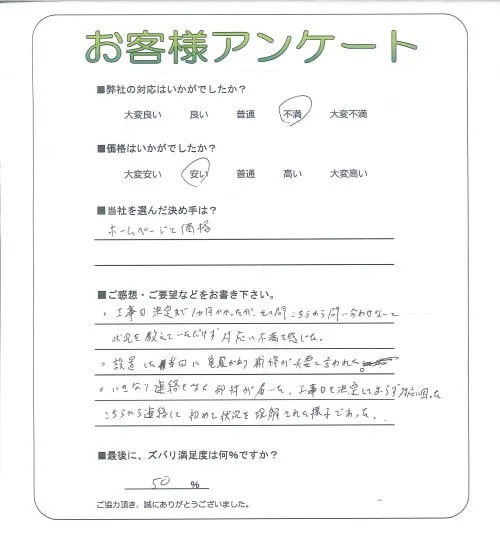 お客様アンケート
■弊社の対応はいかがでしたか？
大変良い 良い 普通 不満 大変不満
■価格はいかがでしたか？
大変安い 安い 普通 高い 大変高い
■当社を選んだ決め手は？
ホームページと価格
■ご感想・ご要望などをお書き下さい。
・工事日決定まで1ヵ月かかったが、その間こちらから問い合わせないと
状況を教えていただけず対応に不満を感じた。
・設置した当日に 補修が必要と言われた。
・いきなり連絡もなく部材が届いた、工事日も決定しておらず対応に困った
こちらから連絡して初めて状況を理解された様子であった。
■最後に、ズバリ満足度は何%ですか？
50 %
ご協力頂き、誠にありがとうございました。